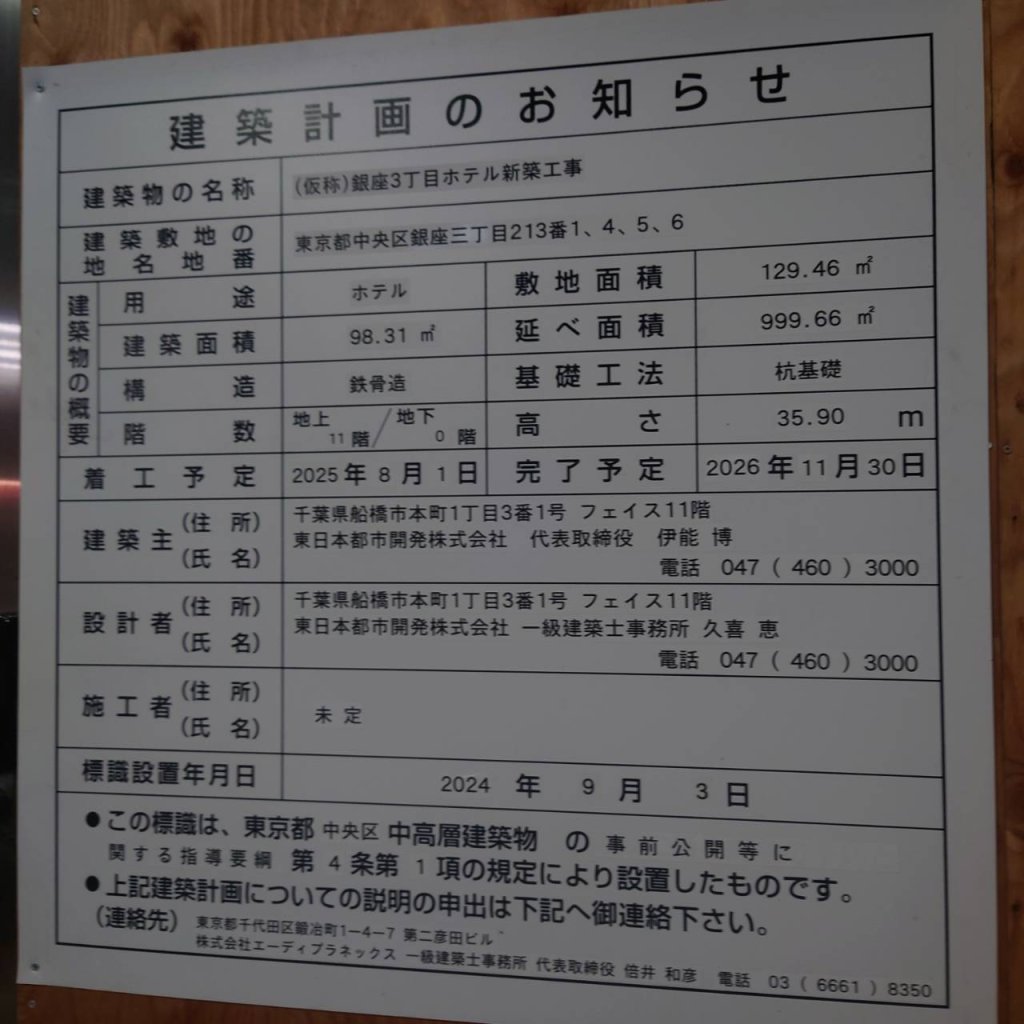 建築計画のお知らせ
建築物の名称 (仮称)銀座3丁目ホテル新築工事
建築敷地の地名地番 東京都中央区銀座三丁目213番1、4、5、6
建築物の概要
用途 ホテル 敷地面積 129.46 ㎡
建築面積 98.31 ㎡ 延べ面積 999.66 ㎡
構造 鉄骨造 基礎工法 杭基礎
階数 地上 11 階/地下 0 階 高さ 35.90 m
着工予定 2025年 8月 1日 完了予定 2026年11月30日
建築主 (住所) 千葉県船橋市本町1丁目3番1号 フェイス11階
(氏名) 東日本都市開発株式会社 代表取締役 伊能 博
電話 047 ( 460 ) 3000
設計者 (住所) 千葉県船橋市本町1丁目3番1号 フェイス11階
(氏名) 東日本都市開発株式会社 一級建築士事務所 久喜 恵
電話 047 ( 460 ) 3000
施工者 (住所)
(氏名) 未定
標識設置年月日 2024 年 9 月 3 日
●この標識は、東京都 中央区 中高層建築物 の 事前公開等に
関する指導要綱 第 4 条第 1 項の規定により設置したものです。
●上記建築計画についての説明の申出は下記へ御連絡下さい。
(連絡先) 東京都千代田区鍛冶町1-4-7 第二彦田ビル
株式会社エーディプラネックス 一級建築士事務所 代表取締役 倍井 和彦 電話 03 ( 6661 ) 8350